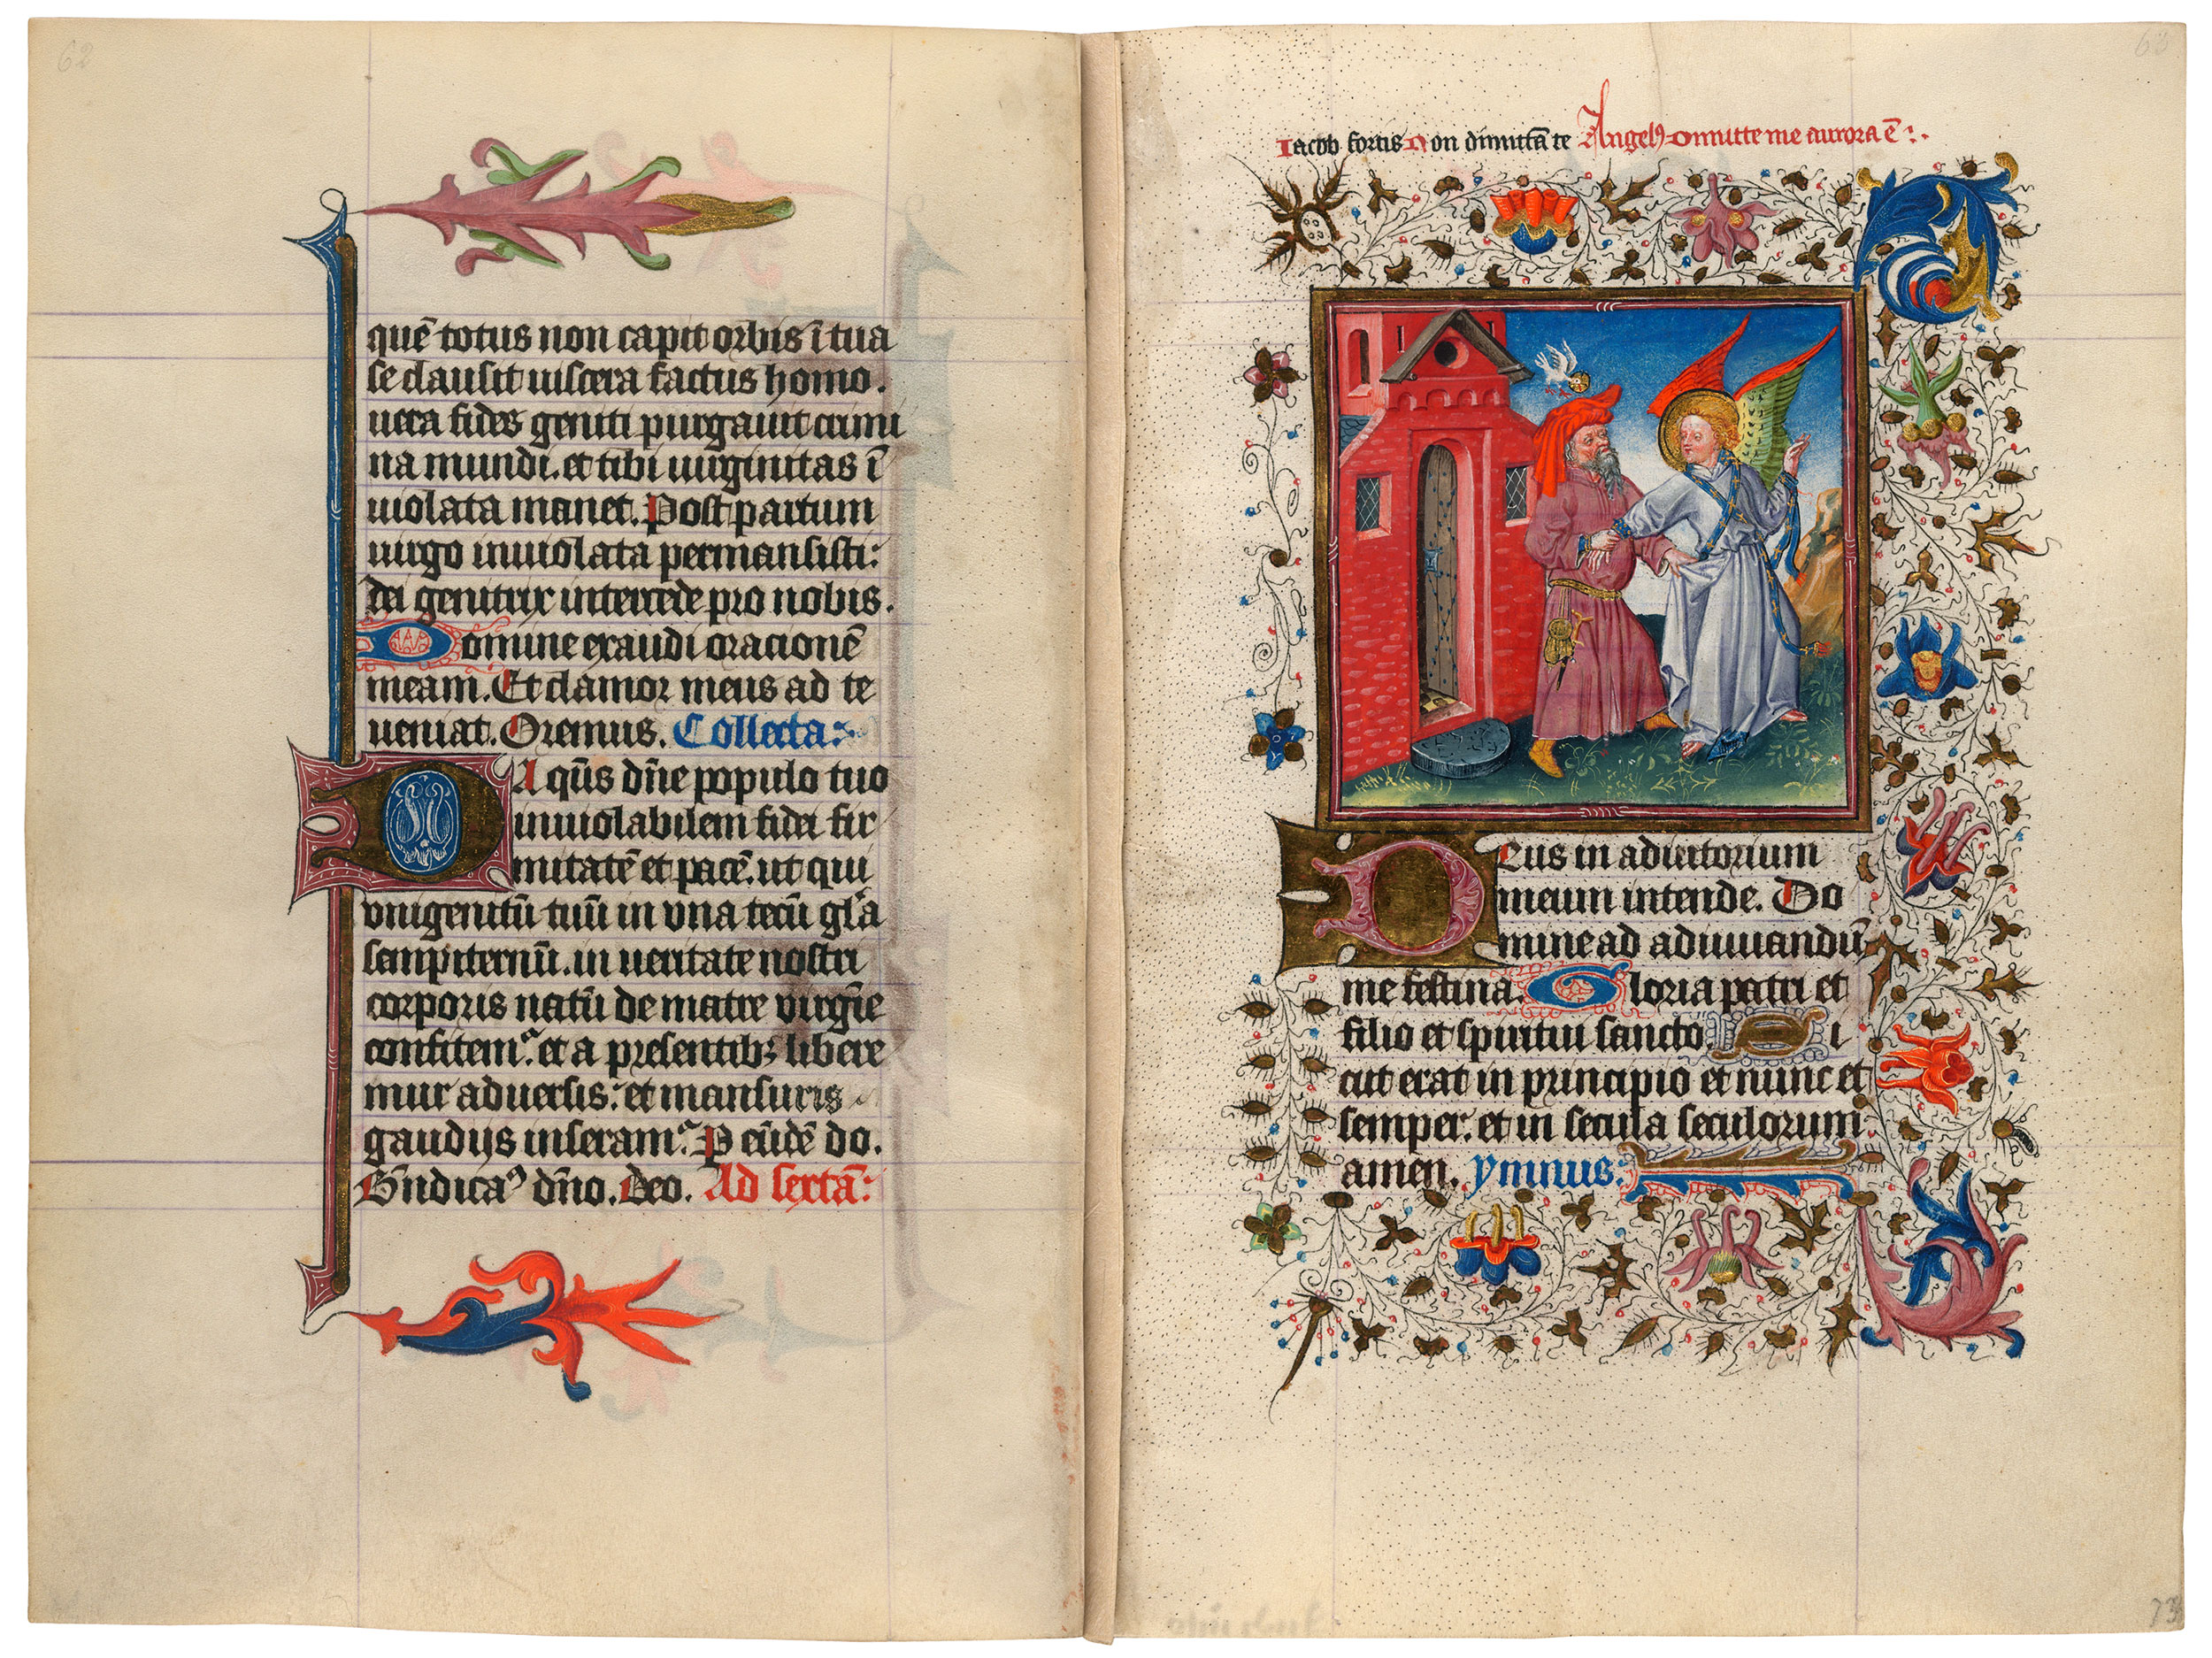 62
quē totus non capit orbis ī tua
se clausit uiscera factus homo.
uera fides geniti purgauit crimi
na mundi. et tibi uirginitas ī
uiolata manet. Post partum
uirgo inuiolata permansisti:
dei genitrix intercede pro nobis.
Domine exaudi oracionē
meam. Et clamor meus ad te
ueniat. Oremus. Collecta:
DA qūs dn̄e populo tuo
inuiolabilem fidei fir
mitatē et pacē. ut qui
vnigenitū tuū in vna tecū gl̄a
sempiternū. in ueritate nostri
corporis natū de matre virgīe
confitem᷑. et a presentibꝫ libere
mur aduersis: et mansuris
gaudijs inseram᷑. P eūdē do.
Bn̄dicaꝰ dn̄o. Deo. Ad sextā:
63
Iacob fortis Non dimittā te Angelꝰ Dimitte me aurora ē:.
Deus in adiutorium
meum intende. Do
mine ad adiuuandū
me festina. Gloria patri et
filio et spiritui sancto. Si
cut erat in principio et nunc et
semper. et in secula seculorum
amen. ymnus:
73